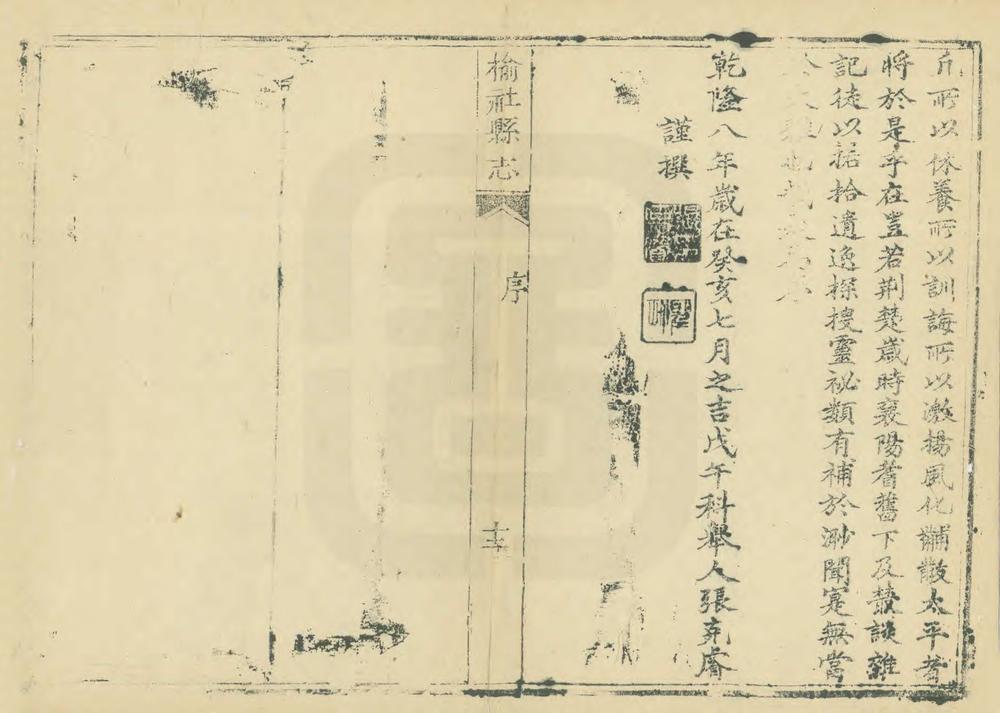 凡所以休養所以訓誨所以激揚風化黼黻太平者
將於是乎在豈若荆楚歲時襄陽耆舊下及叢談雜
記徒以掂拾遺逸探搜靈祕類有補於渺聞寔無當
乾隆八年歲在癸亥七月之吉戊午科舉人張克𢡟
謹撰
榆社縣志
序